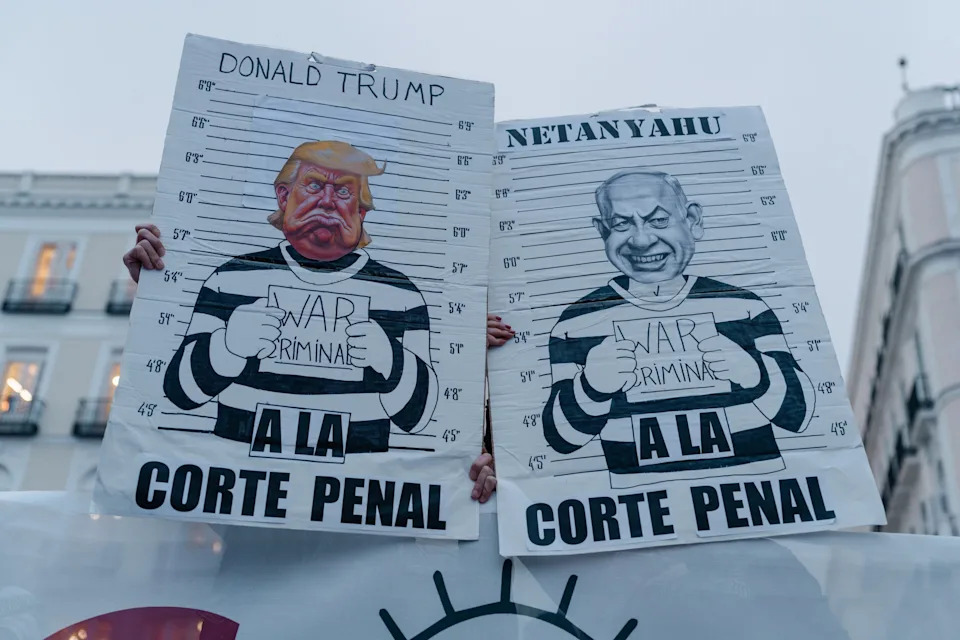 DONALD TRUMP
6'9"
6'9"
6'6"
6'6"
6'3"
6'3"
6'0"
6'0"
5'7"
5'7"
5'4"
5'4"
5'1"
5'1"
4'8"
4'8"
4'5"
4'5"
WAR
CRIMINAL
A LA
CORTE PENAL
NETANYAHU
6'9"
6'9"
6'6"
6'3"
6'3"
6'0"
6'0"
5'7"
5'4"
5'4"
5'1"
5'1"
4'8"
4'8"
4'5"
4'5"
WAR
CRIMINAL
A LA
CORTE PENAL